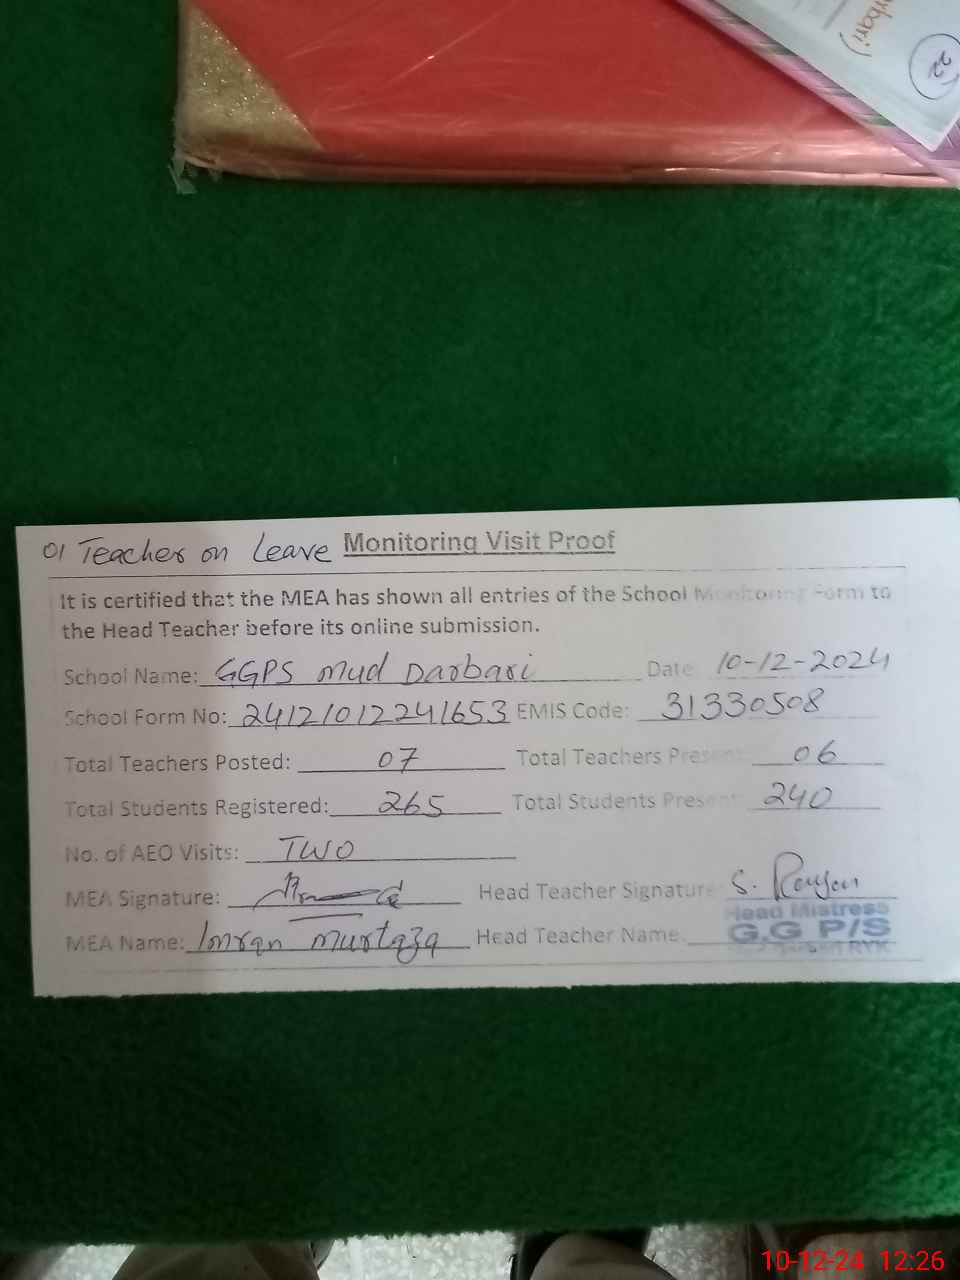 rbari)
22
01 Teacher on Leave Monitoring Visit Proof
It is certified that the MEA has shown all entries of the School Monitoring Form to
the Head Teacher before its online submission.
School Name: GGPS Mud Darbari Date: 10-12-2024
School Form No: 24121012241653 EMIS Code: 31330508
Total Teachers Posted: 07 Total Teachers Present: 06
Total Students Registered: 265 Total Students Present: 240
No. of AEO Visits: TWO
MEA Signature: Head Teacher Signature: S.
MEA Name: Imran Murtaza Head Teacher Name:
Head Mistress
G.G P/S
RYK
10-12-24 12:26